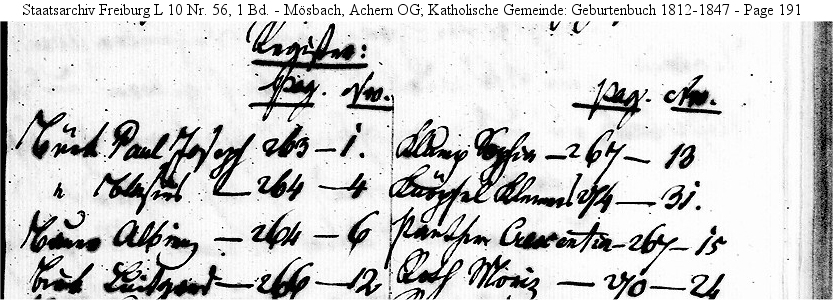 Staatsarchiv Freiburg L 10 Nr. 56, 1 Bd. - Mösbach, Achern OG; Katholische Gemeinde: Geburtenbuch 1812-1847 - Page 191
Register:
pag. Nro.
pag. Nro.
Paul Joseph 263 – 1.
" Blasius – 264 – 4
Albin – 264 – 6
Luitgard – 266 – 12
Klump Sophia – 267 – 13
Knöpfel Klemens 274 – 31.
Panther Crescentia – 267 – 15
Roth Moriz – 270 – 21